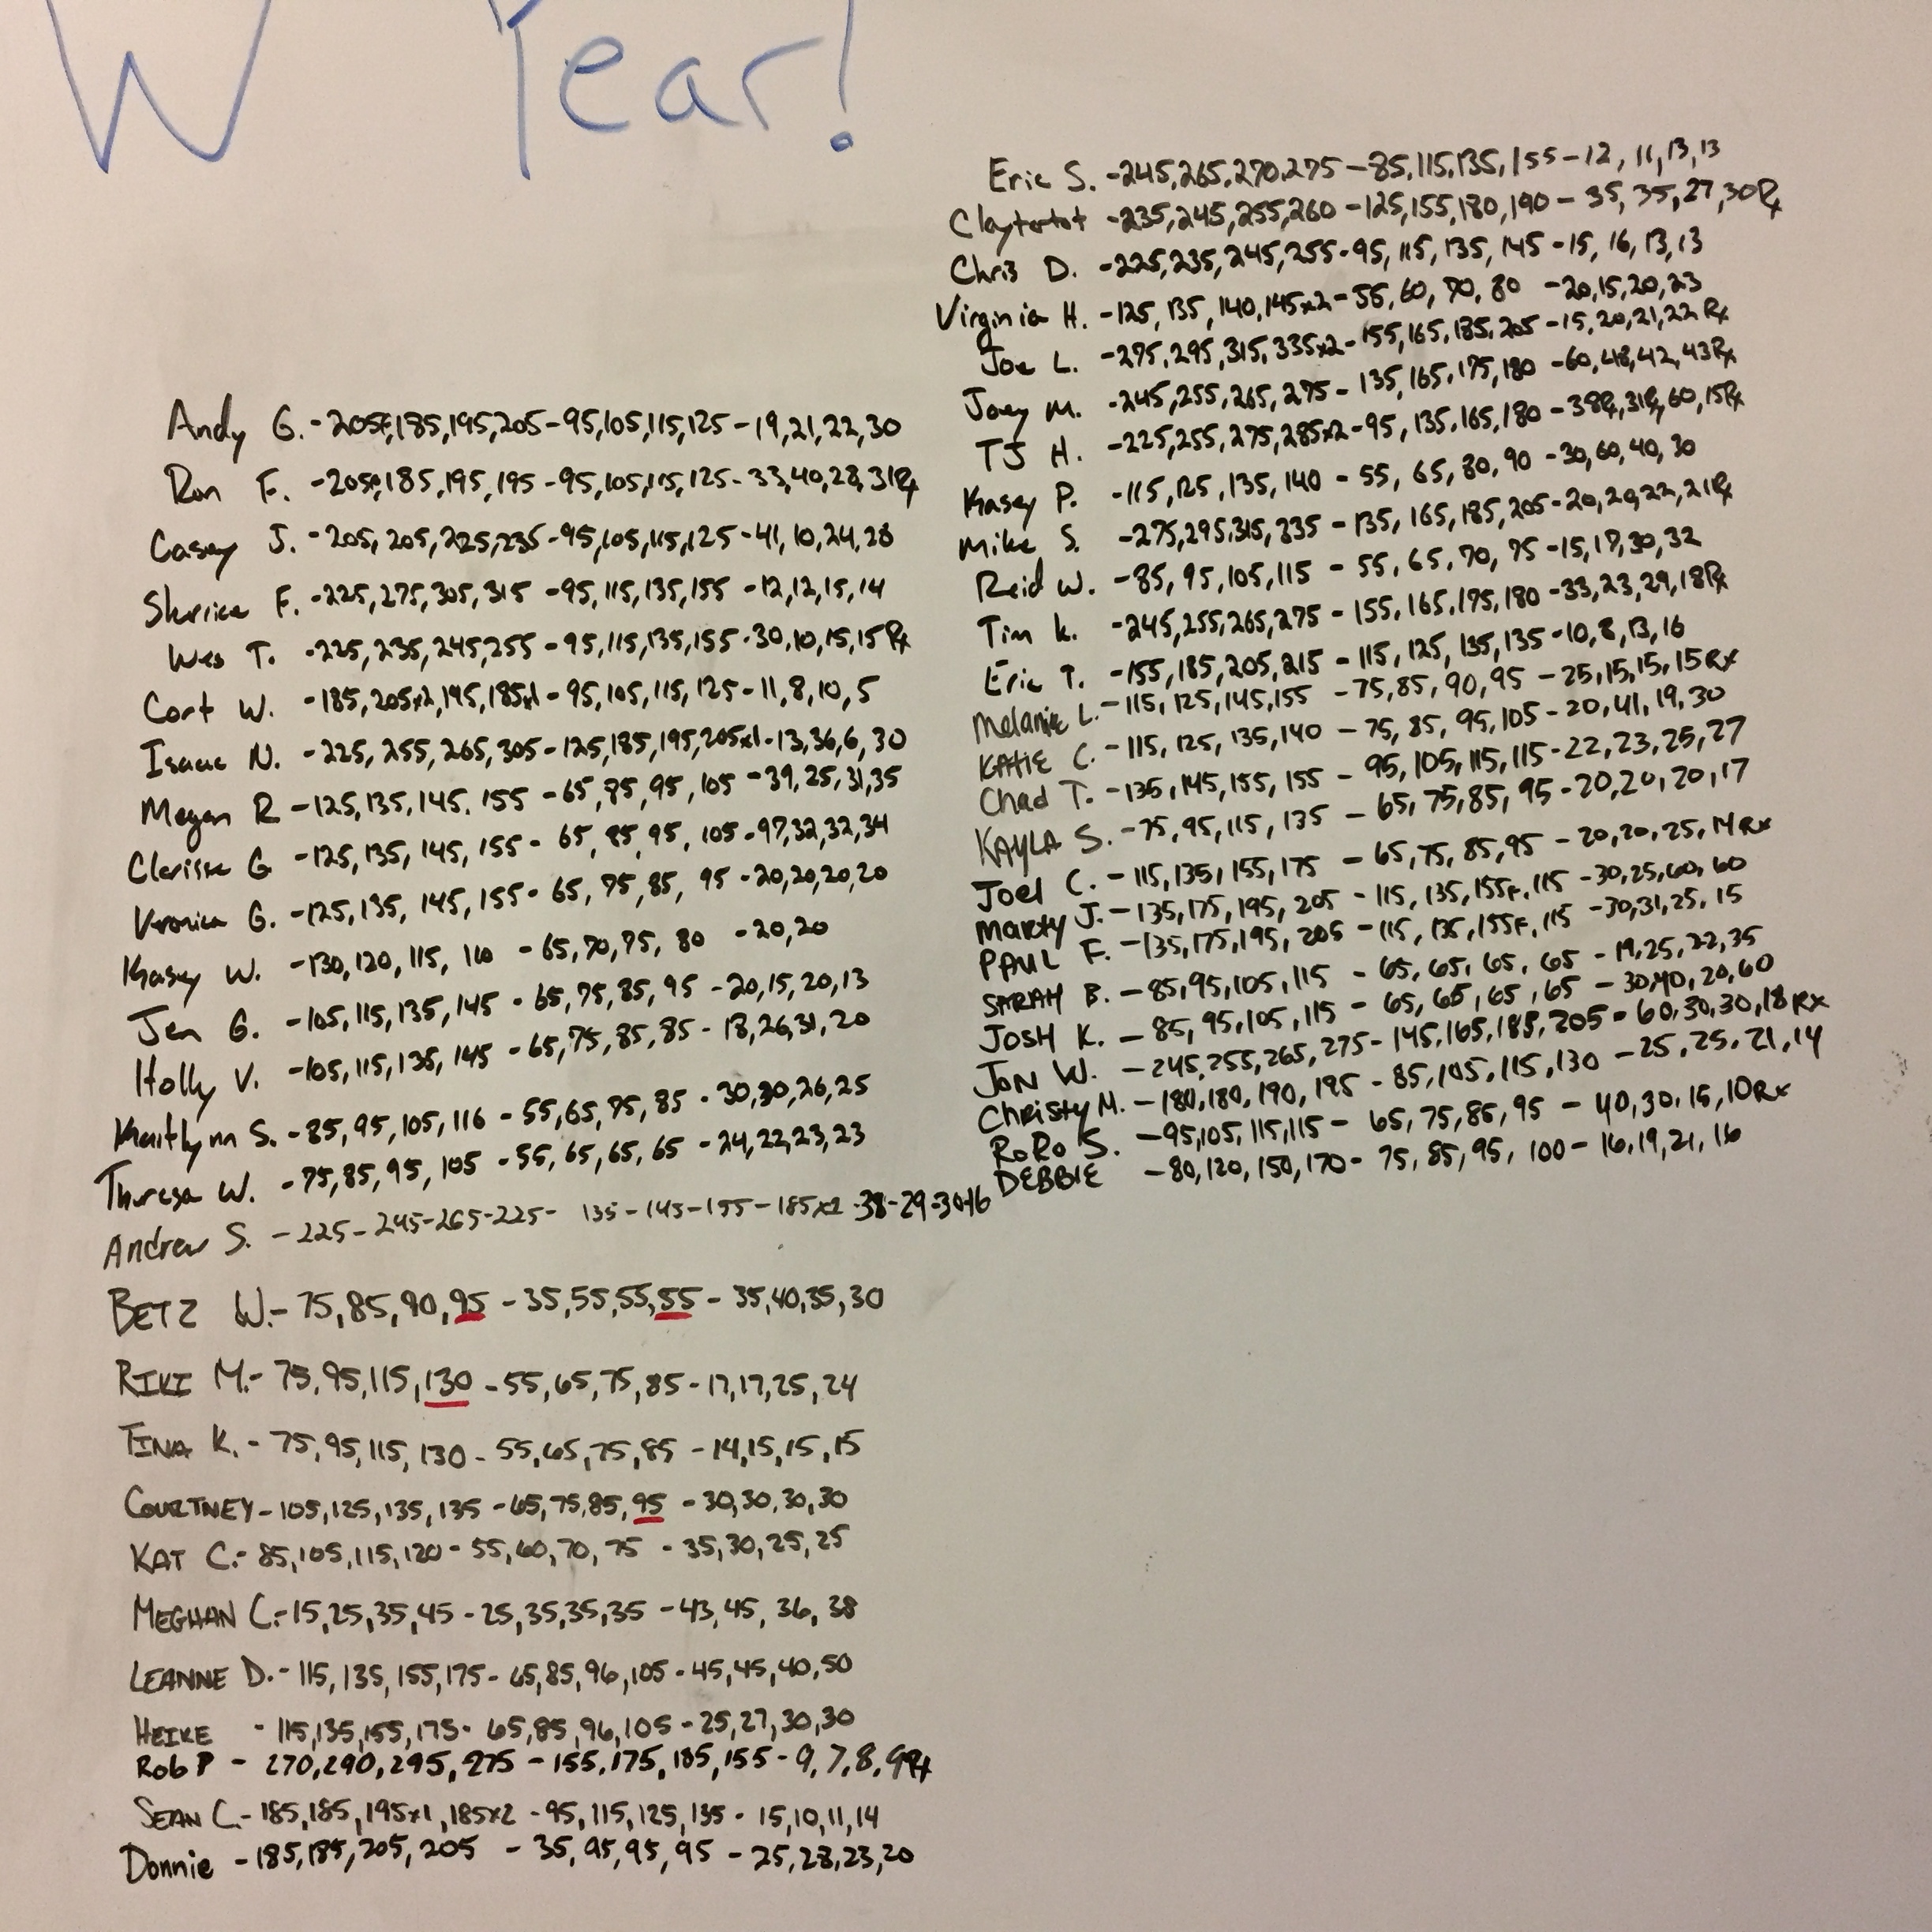 W Year!
Andy G. - 205F, 185, 195, 205 - 95, 105, 115, 125 - 19, 21, 22, 30
Ron F. - 205F, 185, 195, 195 - 95, 105, 115, 125 - 33, 40, 28, 31Rx
Casey J. - 205, 205, 225, 235 - 95, 105, 115, 125 - 41, 10, 24, 28
F. - 225, 275, 305, 315 - 95, 115, 135, 155 - 12, 12, 15, 14
Wes T. - 225, 235, 245, 255 - 95, 115, 135, 155 - 30, 10, 15, 15Rx
Cort W. - 185, 205x2, 195, 185x1 - 95, 105, 115, 125 - 11, 8, 10, 5
Isaac N. - 225, 255, 265, 305 - 125, 185, 195, 205x1 - 13, 36, 6, 30
Megan R - 125, 135, 145, 155 - 65, 85, 95, 105 - 39, 25, 31, 35
Clarisse G - 125, 135, 145, 155 - 65, 85, 95, 105 - 97, 32, 32, 34
Veronica G. - 125, 135, 145, 155 - 65, 75, 85, 95 - 20, 20, 20, 20
Kasey W. - 130, 120, 115, 110 - 65, 70, 75, 80 - 20, 20
Jen G. - 105, 115, 135, 145 - 65, 75, 85, 95 - 20, 15, 20, 13
Holly V. - 105, 115, 135, 145 - 65, 75, 85, 85 - 18, 26, 31, 20
Kaitlynn S. - 85, 95, 105, 116 - 55, 65, 75, 85 - 30, 30, 26, 25
Theresa W. - 75, 85, 95, 105 - 55, 65, 65, 65 - 24, 22, 23, 23
Andrew S. - 225 - 245 - 265 - 225 - 135 - 145 - 155 - 185x2 - 38 - 29 - 30 - 16
BETZ W. - 75, 85, 90, 95 - 35, 55, 55, 55 - 35, 40, 35, 30
RIKI M. - 75, 95, 115, 130 - 55, 65, 75, 85 - 17, 17, 25, 24
TINA K. - 75, 95, 115, 130 - 55, 65, 75, 85 - 14, 15, 15, 15
COURTNEY - 105, 125, 135, 135 - 65, 75, 85, 95 - 30, 30, 30, 30
KAT C. - 85, 105, 115, 120 - 55, 60, 70, 75 - 35, 30, 25, 25
MEGHAN C. - 15, 25, 35, 45 - 25, 35, 35, 35 - 43, 45, 36, 38
LEANNE D. - 115, 135, 155, 175 - 65, 85, 96, 105 - 45, 45, 40, 50
HEIKE - 115, 135, 155, 175 - 65, 85, 96, 105 - 25, 27, 30, 30
Rob P - 270, 290, 295, 275 - 155, 175, 185, 155 - 9, 7, 8, 9Rx
SEAN C. - 185, 185, 195x1, 185x2 - 95, 115, 125, 135 - 15, 10, 11, 14
Donnie - 185, 185, 205, 205 - 35, 95, 95, 95 - 25, 28, 23, 20
Eric S. - 245, 265, 270, 275 - 85, 115, 135, 155 - 12, 11, 13, 13
Claytertot - 235, 245, 255, 260 - 125, 155, 180, 190 - 35, 35, 27, 30Rx
Chris D. - 225, 235, 245, 255 - 95, 115, 135, 145 - 15, 16, 13, 13
Virginia H. - 125, 135, 140, 145x2 - 55, 60, 70, 80 - 20, 15, 20, 23
Joe L. - 275, 295, 315, 335x2 - 155, 165, 185, 205 - 15, 20, 21, 22Rx
Joey M. - 245, 255, 265, 275 - 135, 165, 175, 180 - 60, 48, 42, 43Rx
TJ H. - 225, 255, 275, 285x2 - 95, 135, 165, 180 - 38Rx, 31Rx, 60, 15Rx
Kasey P. - 115, 125, 135, 140 - 55, 65, 80, 90 - 30, 60, 40, 30
Mike S. - 275, 295, 315, 335 - 135, 165, 185, 205 - 20, 20, 22, 21Rx
Reid W. - 85, 95, 105, 115 - 55, 65, 70, 75 - 15, 17, 30, 32
Tim K. - 245, 255, 265, 275 - 155, 165, 175, 180 - 33, 23, 29, 18Rx
Eric T. - 155, 185, 205, 215 - 115, 125, 135, 135 - 10, 8, 13, 16
Melanie L. - 115, 125, 145, 155 - 75, 85, 90, 95 - 25, 15, 15, 15Rx
KATIE C. - 115, 125, 135, 140 - 75, 85, 95, 105 - 20, 41, 19, 30
Chad T. - 135, 145, 155, 155 - 95, 105, 115, 115 - 22, 23, 25, 27
KAYLA S. - 75, 95, 115, 135 - 65, 75, 85, 95 - 20, 20, 20, 17
Joel C. - 115, 135, 155, 175 - 65, 75, 85, 95 - 20, 20, 25, 14Rx
Marty J. - 135, 175, 195, 205 - 115, 135, 155F, 115 - 30, 25, 60, 60
PAUL F. - 135, 175, 195, 205 - 115, 135, 155F, 115 - 30, 31, 25, 15
SARAH B. - 85, 95, 105, 115 - 65, 65, 65, 65 - 19, 25, 22, 35
JOSH K. - 85, 95, 105, 115 - 65, 65, 65, 65 - 30, 40, 20, 60
JON W. - 245, 255, 265, 275 - 145, 165, 185, 205 - 60, 30, 30, 18Rx
Christy M. - 180, 180, 190, 195 - 85, 105, 115, 130 - 25, 25, 21, 14
RoRo S. - 95, 105, 115, 115 - 65, 75, 85, 95 - 40, 30, 15, 10Rx
DEBBIE - 80, 120, 150, 170 - 75, 85, 95, 100 - 16, 19, 21, 16